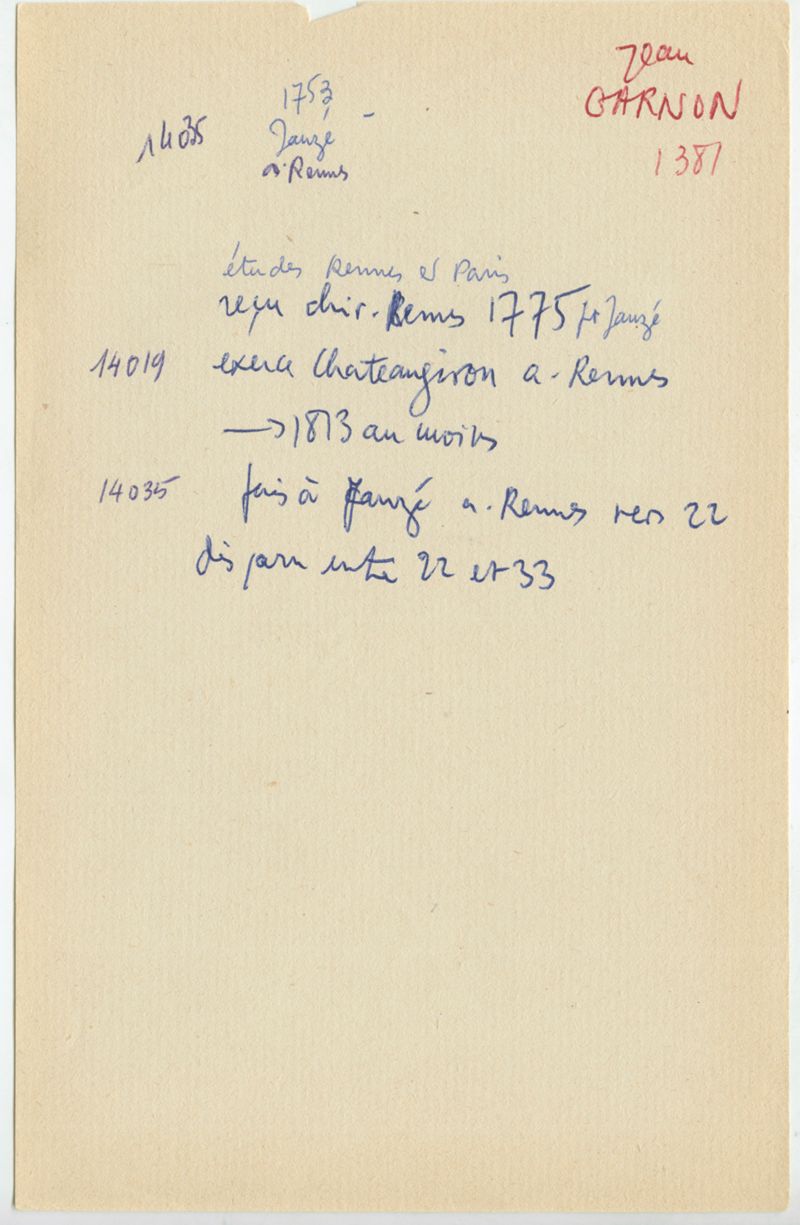 Jean
GARNON
1381
1753 -
14035 Janzé
a. Rennes
études Rennes et Paris
reçu chir. Rennes 1775 pr Janzé
14019 exerce Chateaugiron a. Rennes
→ 1813 au moins
14035 puis à Janzé a. Rennes vers 22
disparu entre 22 et 33